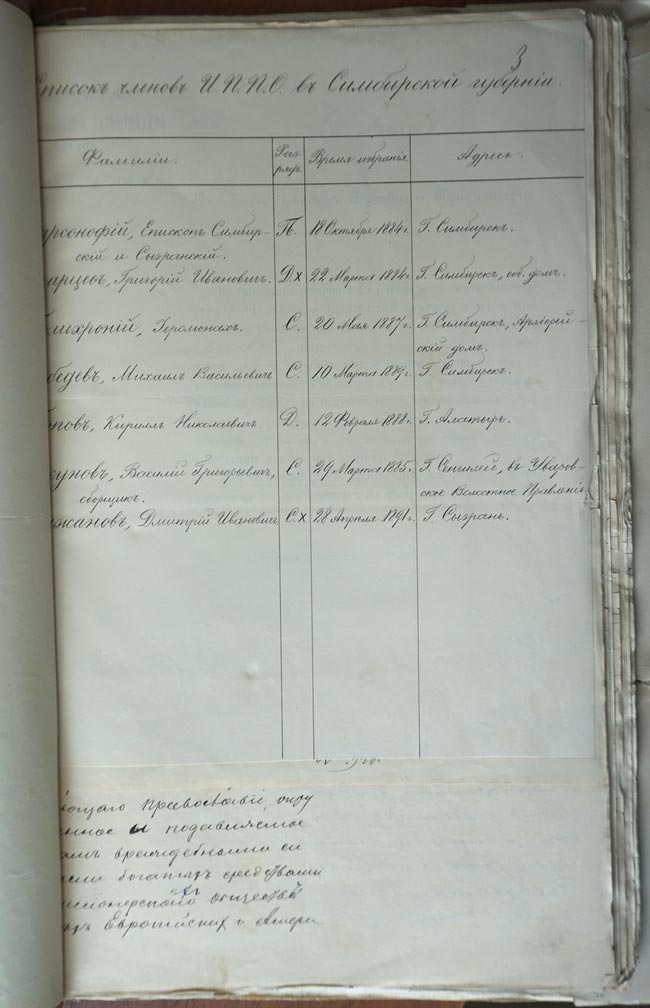 3
Списокъ членовъ И.П.П.О. въ Симбирской губерніи.
Фамиліи. Раз Время избранія. Адресъ.
рядъ.
рсонофій, Епископъ Симбир- П. 18 Октября 1884 г. Г. Симбирскъ.
скій и Сызранскій.
арцевъ, Григорій Ивановичъ. Д.х 22 Марта 1884 г. Г. Симбирскъ, соб. домъ.
лихроній, Іеромонахъ. С. 20 Мая 1887 г. Г. Симбирскъ, Архіерей-
скій домъ.
бедевъ, Михаилъ Васильевичъ С. 10 Марта 1889 г. Г. Симбирскъ.
повъ, Кириллъ Николаевичъ. Д. 12 Февраля 1888 г. Г. Алатырь.
уновъ, Василій Григорьевичъ, С. 29 Марта 1885 г. Г. Сенгилей, въ Уваров-
сборщикъ. ское Волостное Правленіе
жановъ, Дмитрій Ивановичъ С.х 28 Апреля 1891 г. Г. Сызрань.
ющаго православіе, окру
нное и подавляемое
амъ враждебными си
ми богатыхъ средствами
иссіонерскихъ обществъ
хъ Европейских и Амери